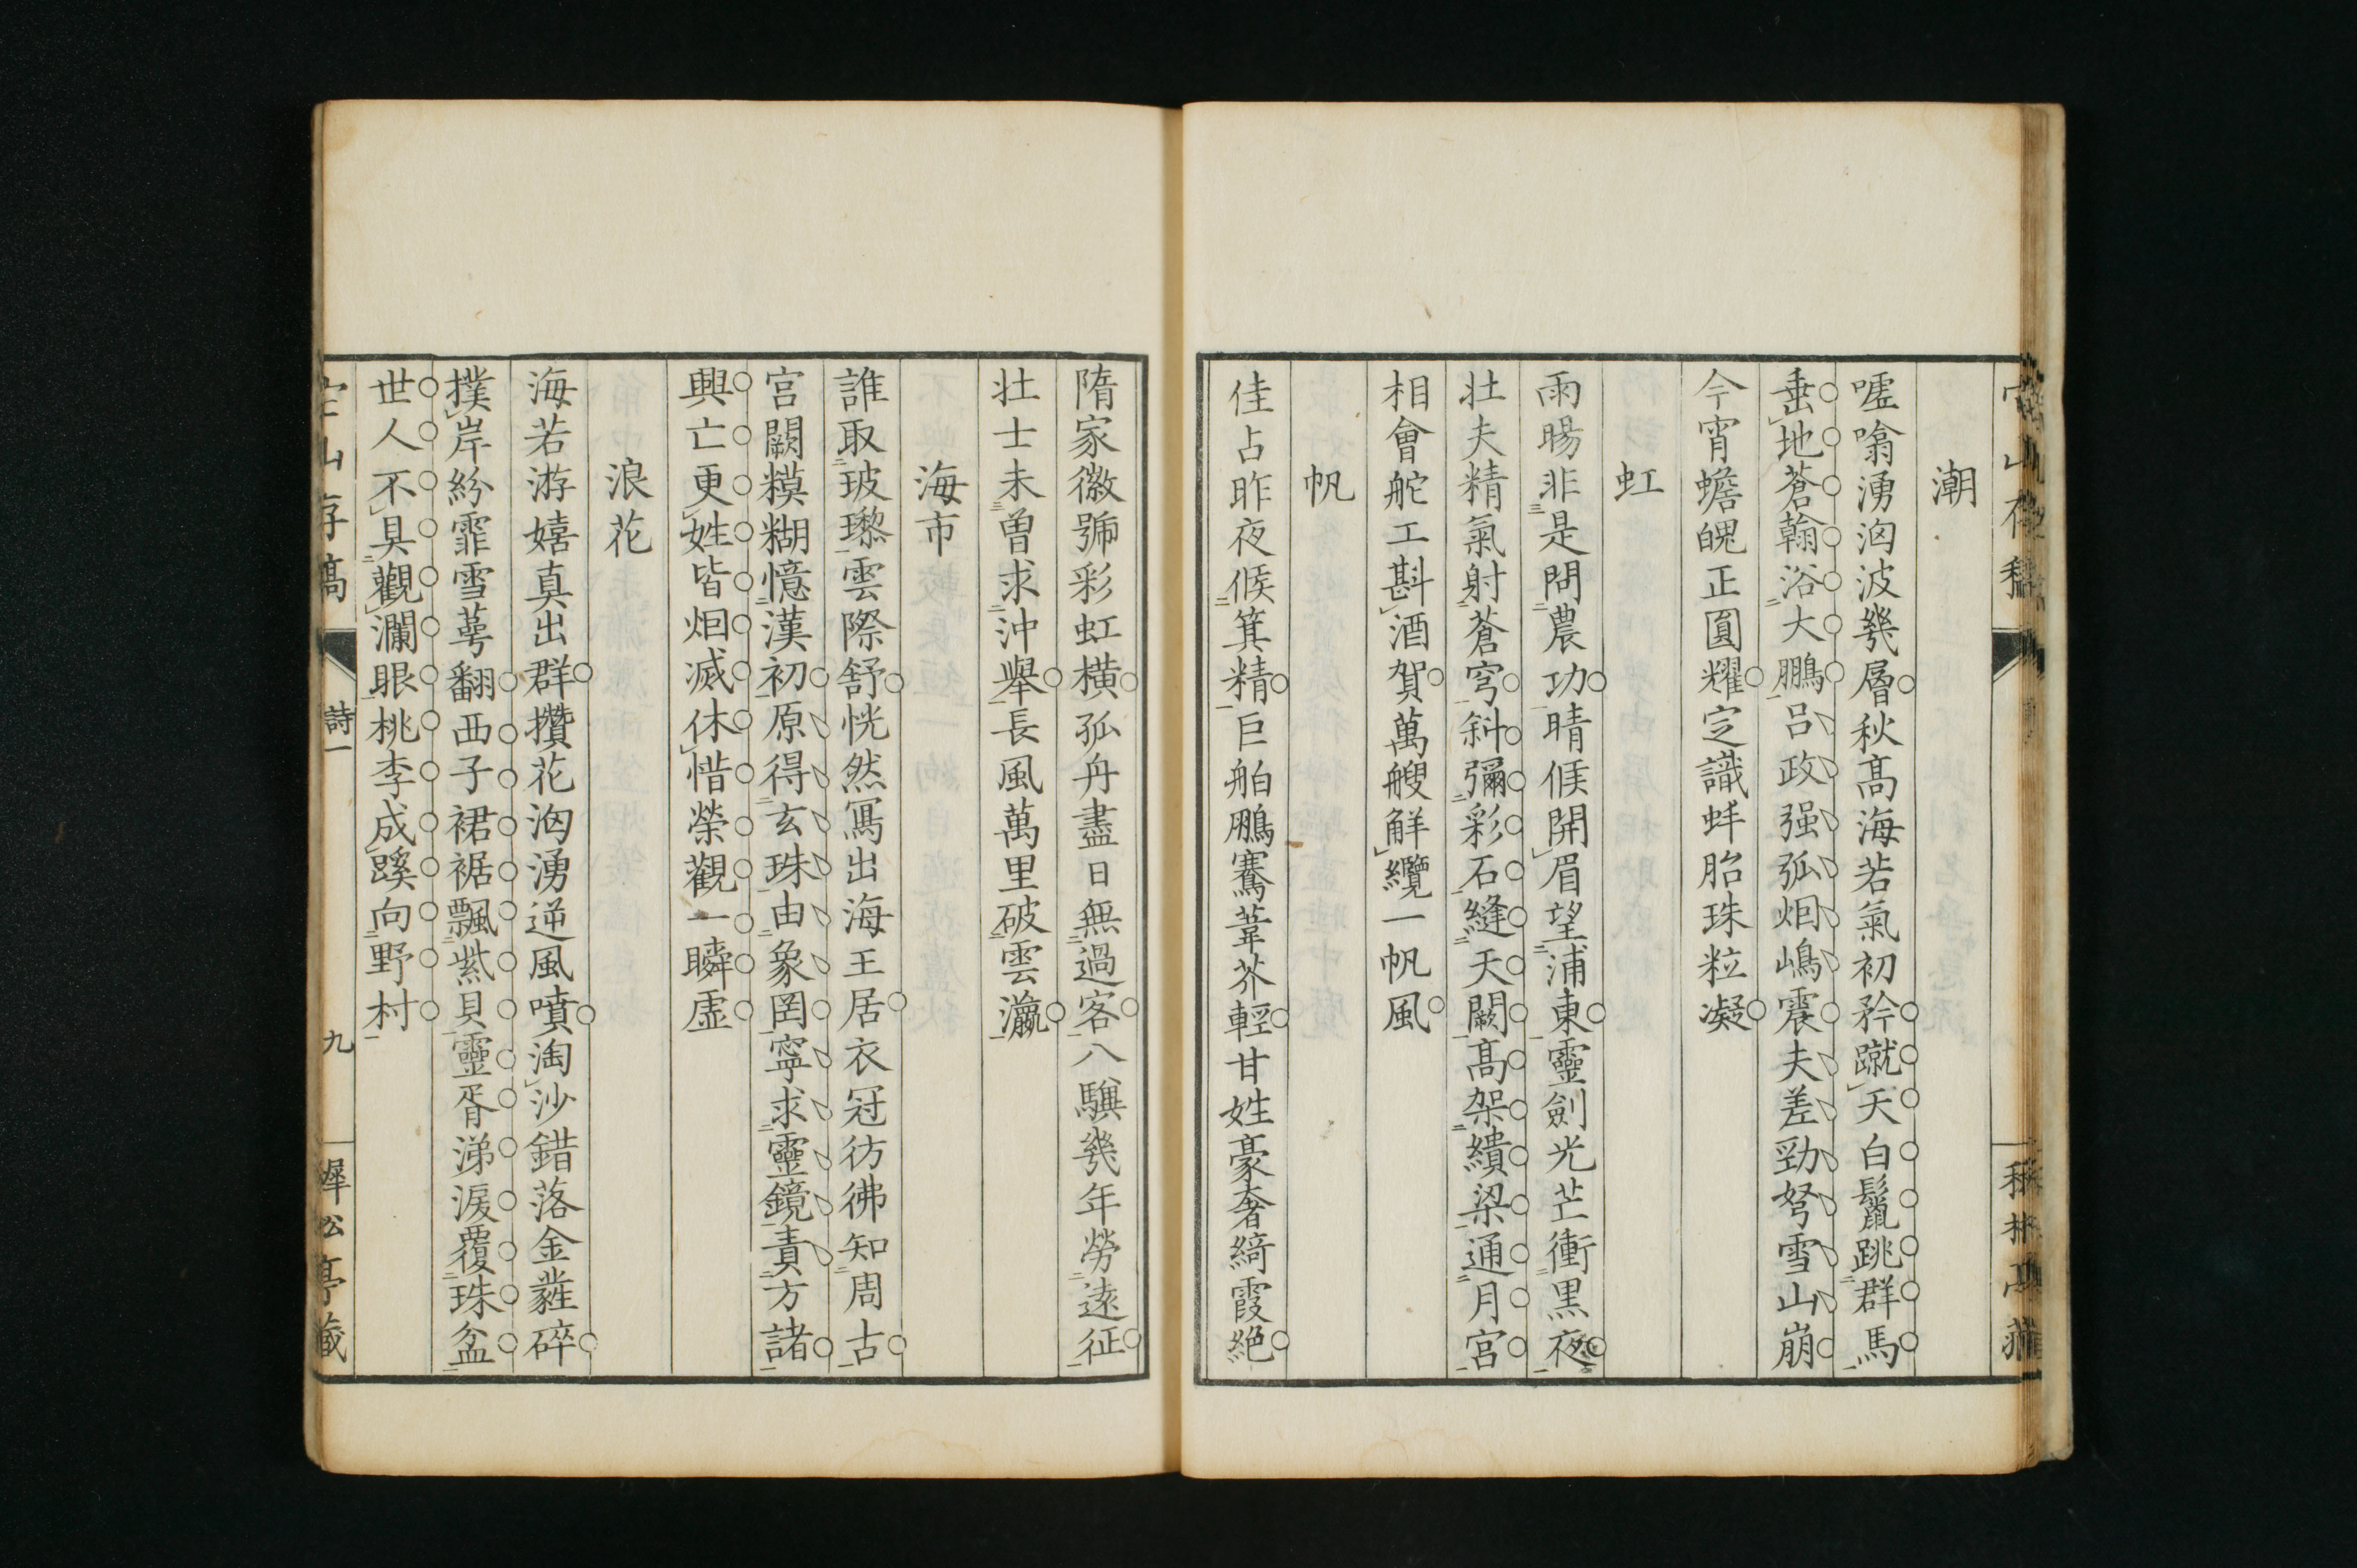 潮
噓噏湧洶波幾層秋高海若氣初矜蹴天白鬣跳群馬
垂地蒼翰浴大鵬呂政强弧烟嶋震夫差勁弩雪山崩
今宵蟾魄正圓耀定識蚌胎珠粒凝
虹
雨暘非是問農功晴候開眉望浦東靈劍光芒衝黑夜
壮夫精氣射蒼穹斜彌彩石縫天闕高架繢梁通月宮
相會舵工斟酒賀萬艘解纜一帆風
帆
佳占昨夜候箕精巨舶鵬騫葦芥輕甘姓豪奢綺霞絕
隋家徽號彩虹橫孤舟盡日無過客八驥幾年勞遠征
壮士未曾求沖舉長風萬里破雲瀛
海市
誰取玻瓈雲際舒恍然寫出海王居衣冠彷彿知周古
宮闕糢糊憶漢初原得玄珠由象罔寧求靈鏡責方諸
興亡更姓皆烟滅休惜榮觀一瞬虛
浪花
海若游嬉真出群攢花洶湧逆風噴淘沙錯落金蕤碎
撲岸紛霏雪萼翻西子裙裾飄紫貝靈胥涕淚覆珠盆
世人不具觀瀾眼桃李成蹊向野村
山存稾
詩一
九
犀松亭藏